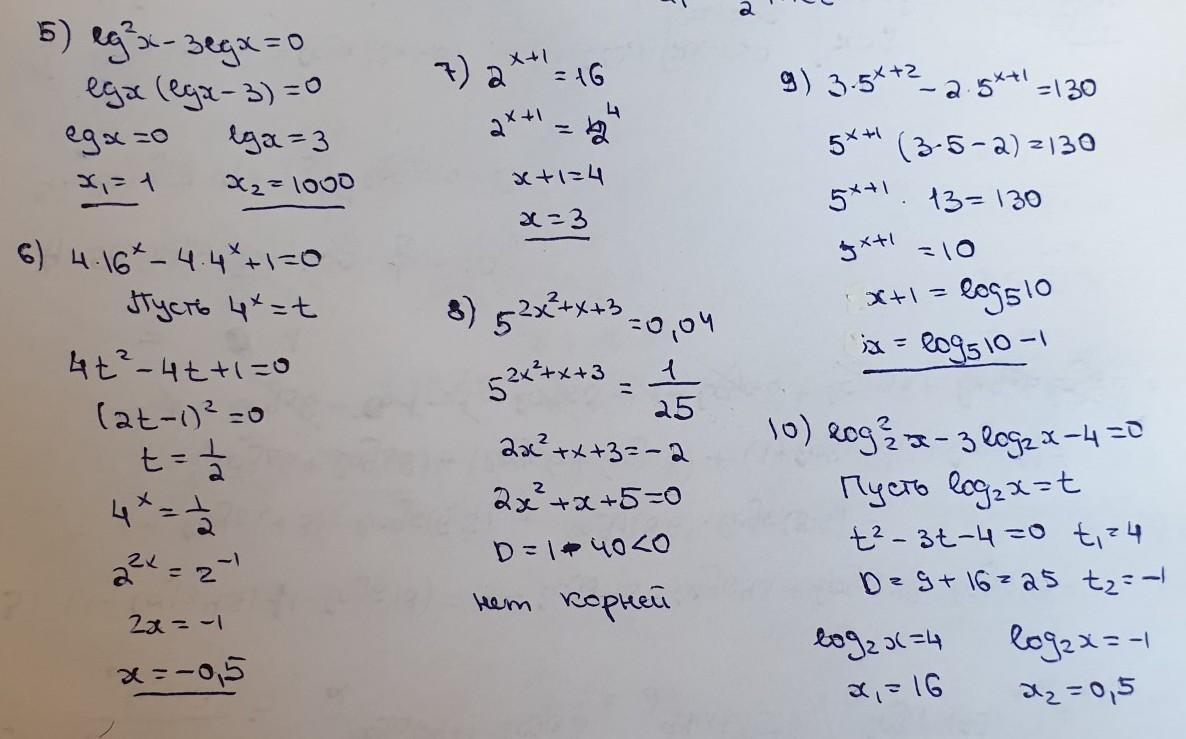 5) lg²x - 3lgx = 0
lgx (lgx - 3) = 0
lgx = 0 lgx = 3
x₁ = 1 x₂ = 1000
6) 4·16ˣ - 4·4ˣ + 1 = 0
Пусть 4ˣ = t
4t² - 4t + 1 = 0
(2t - 1)² = 0
t = 1/2
4ˣ = 1/2
2²ˣ = 2⁻¹
2x = -1
x = -0,5
7) 2ˣ⁺¹ = 16
2ˣ⁺¹ = 2⁴
x + 1 = 4
x = 3
8) 5^(2x² + x + 3) = 0,04
5^(2x² + x + 3) = 1/25
2x² + x + 3 = -2
2x² + x + 5 = 0
D = 1 - 40 < 0
нет корней
9) 3·5ˣ⁺² - 2·5ˣ⁺¹ = 130
5ˣ⁺¹ (3·5 - 2) = 130
5ˣ⁺¹ · 13 = 130
5ˣ⁺¹ = 10
x + 1 = log₅10
x = log₅10 - 1
10) log₂²x - 3log₂x - 4 = 0
Пусть log₂x = t
t² - 3t - 4 = 0 t₁ = 4
D = 9 + 16 = 25 t₂ = -1
log₂x = 4 log₂x = -1
x₁ = 16 x₂ = 0,5